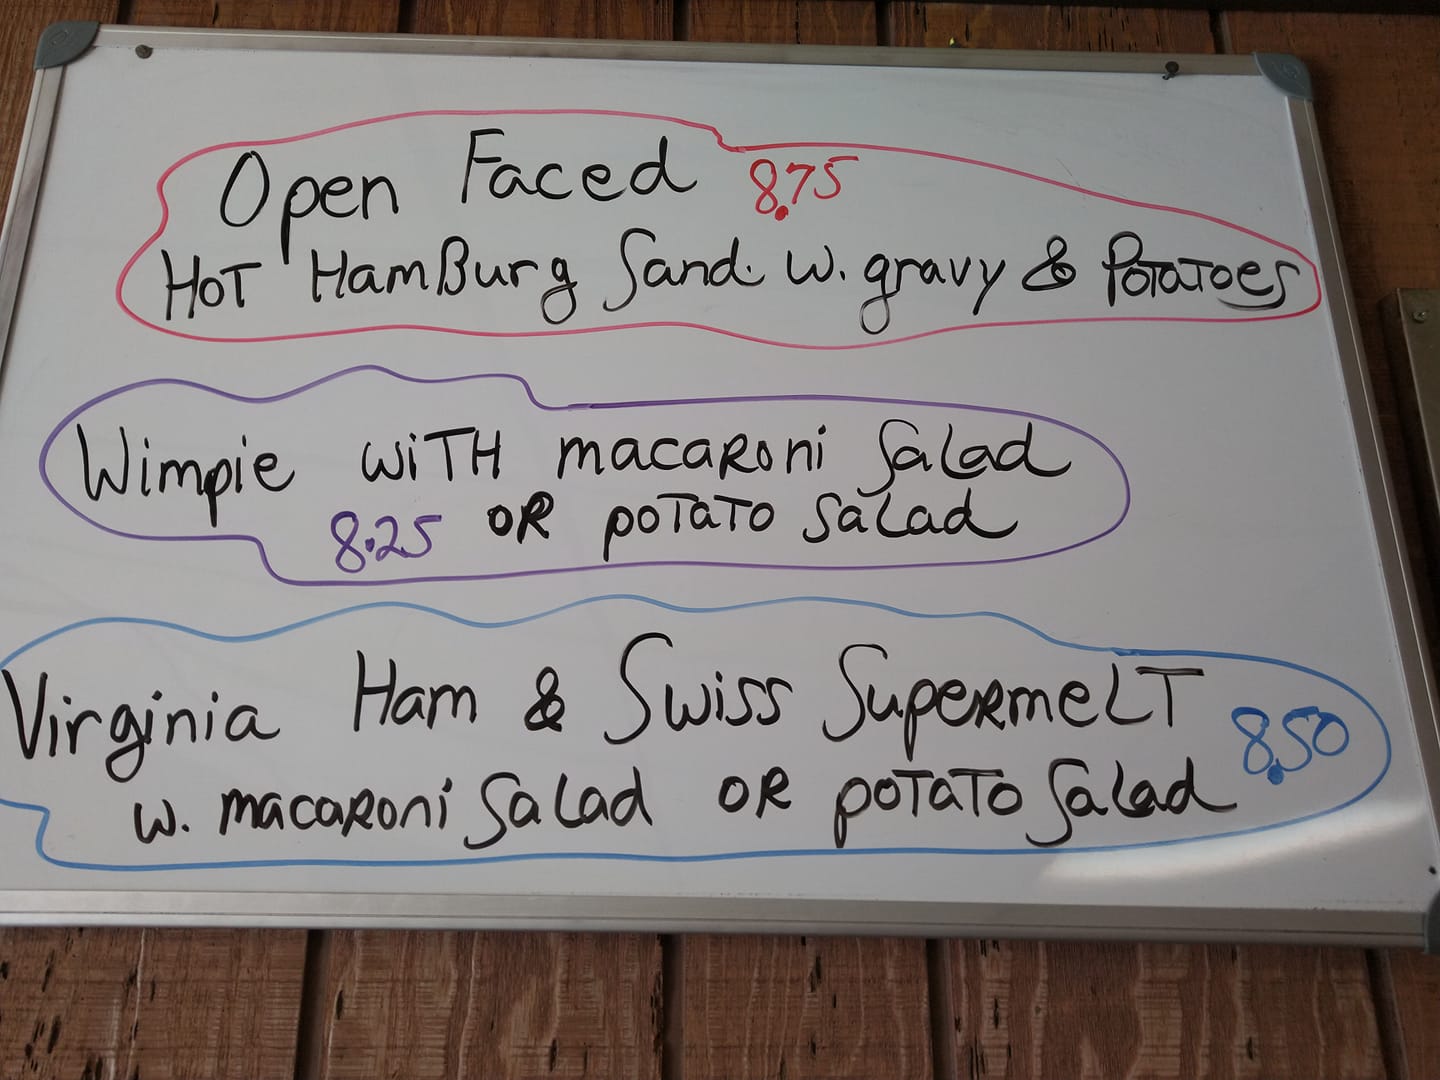 Open Faced 8.75
Hot HamBurg Sand. w. gravy & Potatoes
Wimpie with macaroni salad
8.25 OR potato salad
Virginia Ham & Swiss Supermelt 8.50
w. macaroni salad OR potato salad